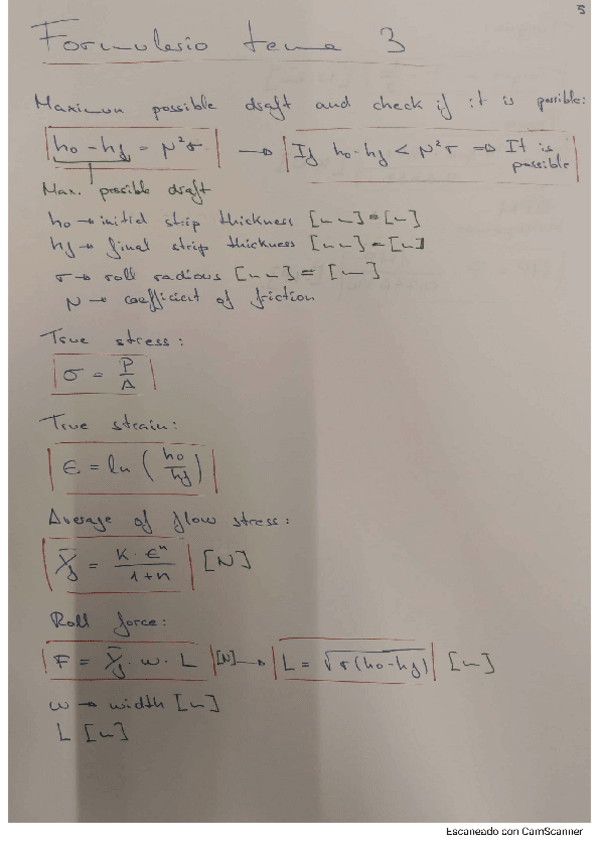 5
Formulario tema 3
Maximun possible draft and check if it is possible:
ho - hf = μ²r → If ho-hf < μ²r ⇒ It is possible
Max. possible draft
ho → initial strip thickness [mm] = [m]
hf → final strip thickness [mm] = [m]
r → roll radious [mm] = [m]
μ → coefficient of friction
True stress:
σ = P/A
True strain:
ε = ln (ho/hf)
Average of flow stress:
Ȳf = K · εⁿ / 1+n [N]
Roll force:
F = Ȳf · w · L [N] → L = √r(ho-hf) [m]
w → width [m]
L [m]
Escaneado con CamScanner